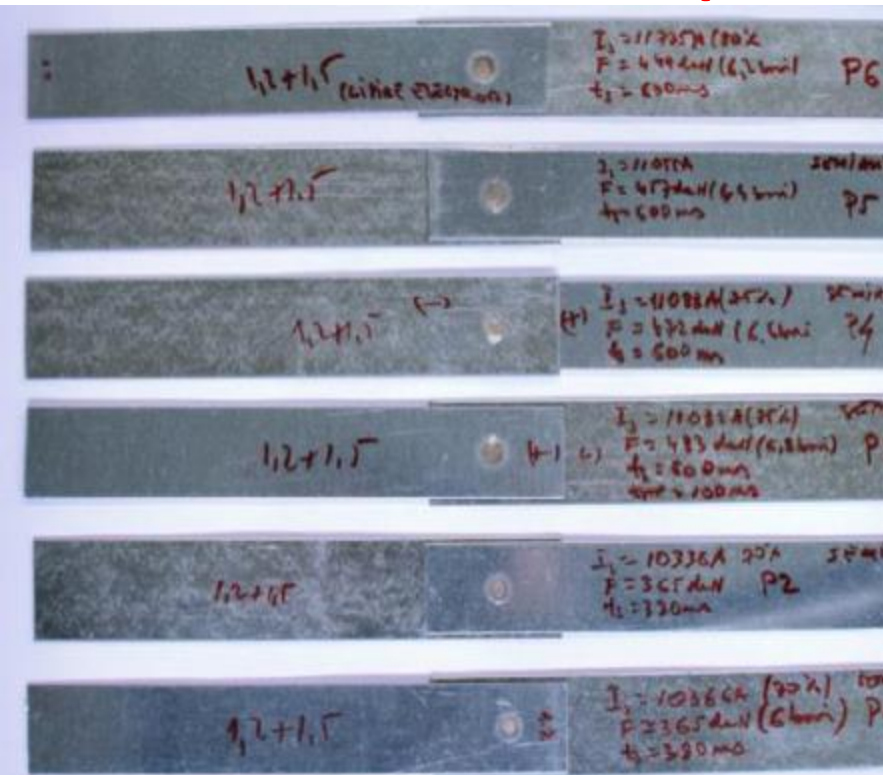 1,2+1,5
I₁=11725A (80%
F = 449 daN (6,2 bari
t₁ = 600 ms
P6
1,2+1,5
I₁=11055A
F = 457 daN (6,4 bari)
t₁=600 ms
P5
1,2+1,5 (-)
(+) I₁=11088A (75%)
F = 472 daN (6,6 bari
t₁ = 600 ms
P4
1,2+1,5
(+) (-) I₁ = 11082A (75%)
F = 483 daN (6,8 bari)
t₁ = 600 ms
= 100 ms
P
1,2+1,5
I₁ = 10336A 70%
F = 365 daN P2
t₁ = 320 ms
1,2+1,5
I₁ = 10366A (70%)
F = 365 daN (6 bari) P
t₁ = 320 ms